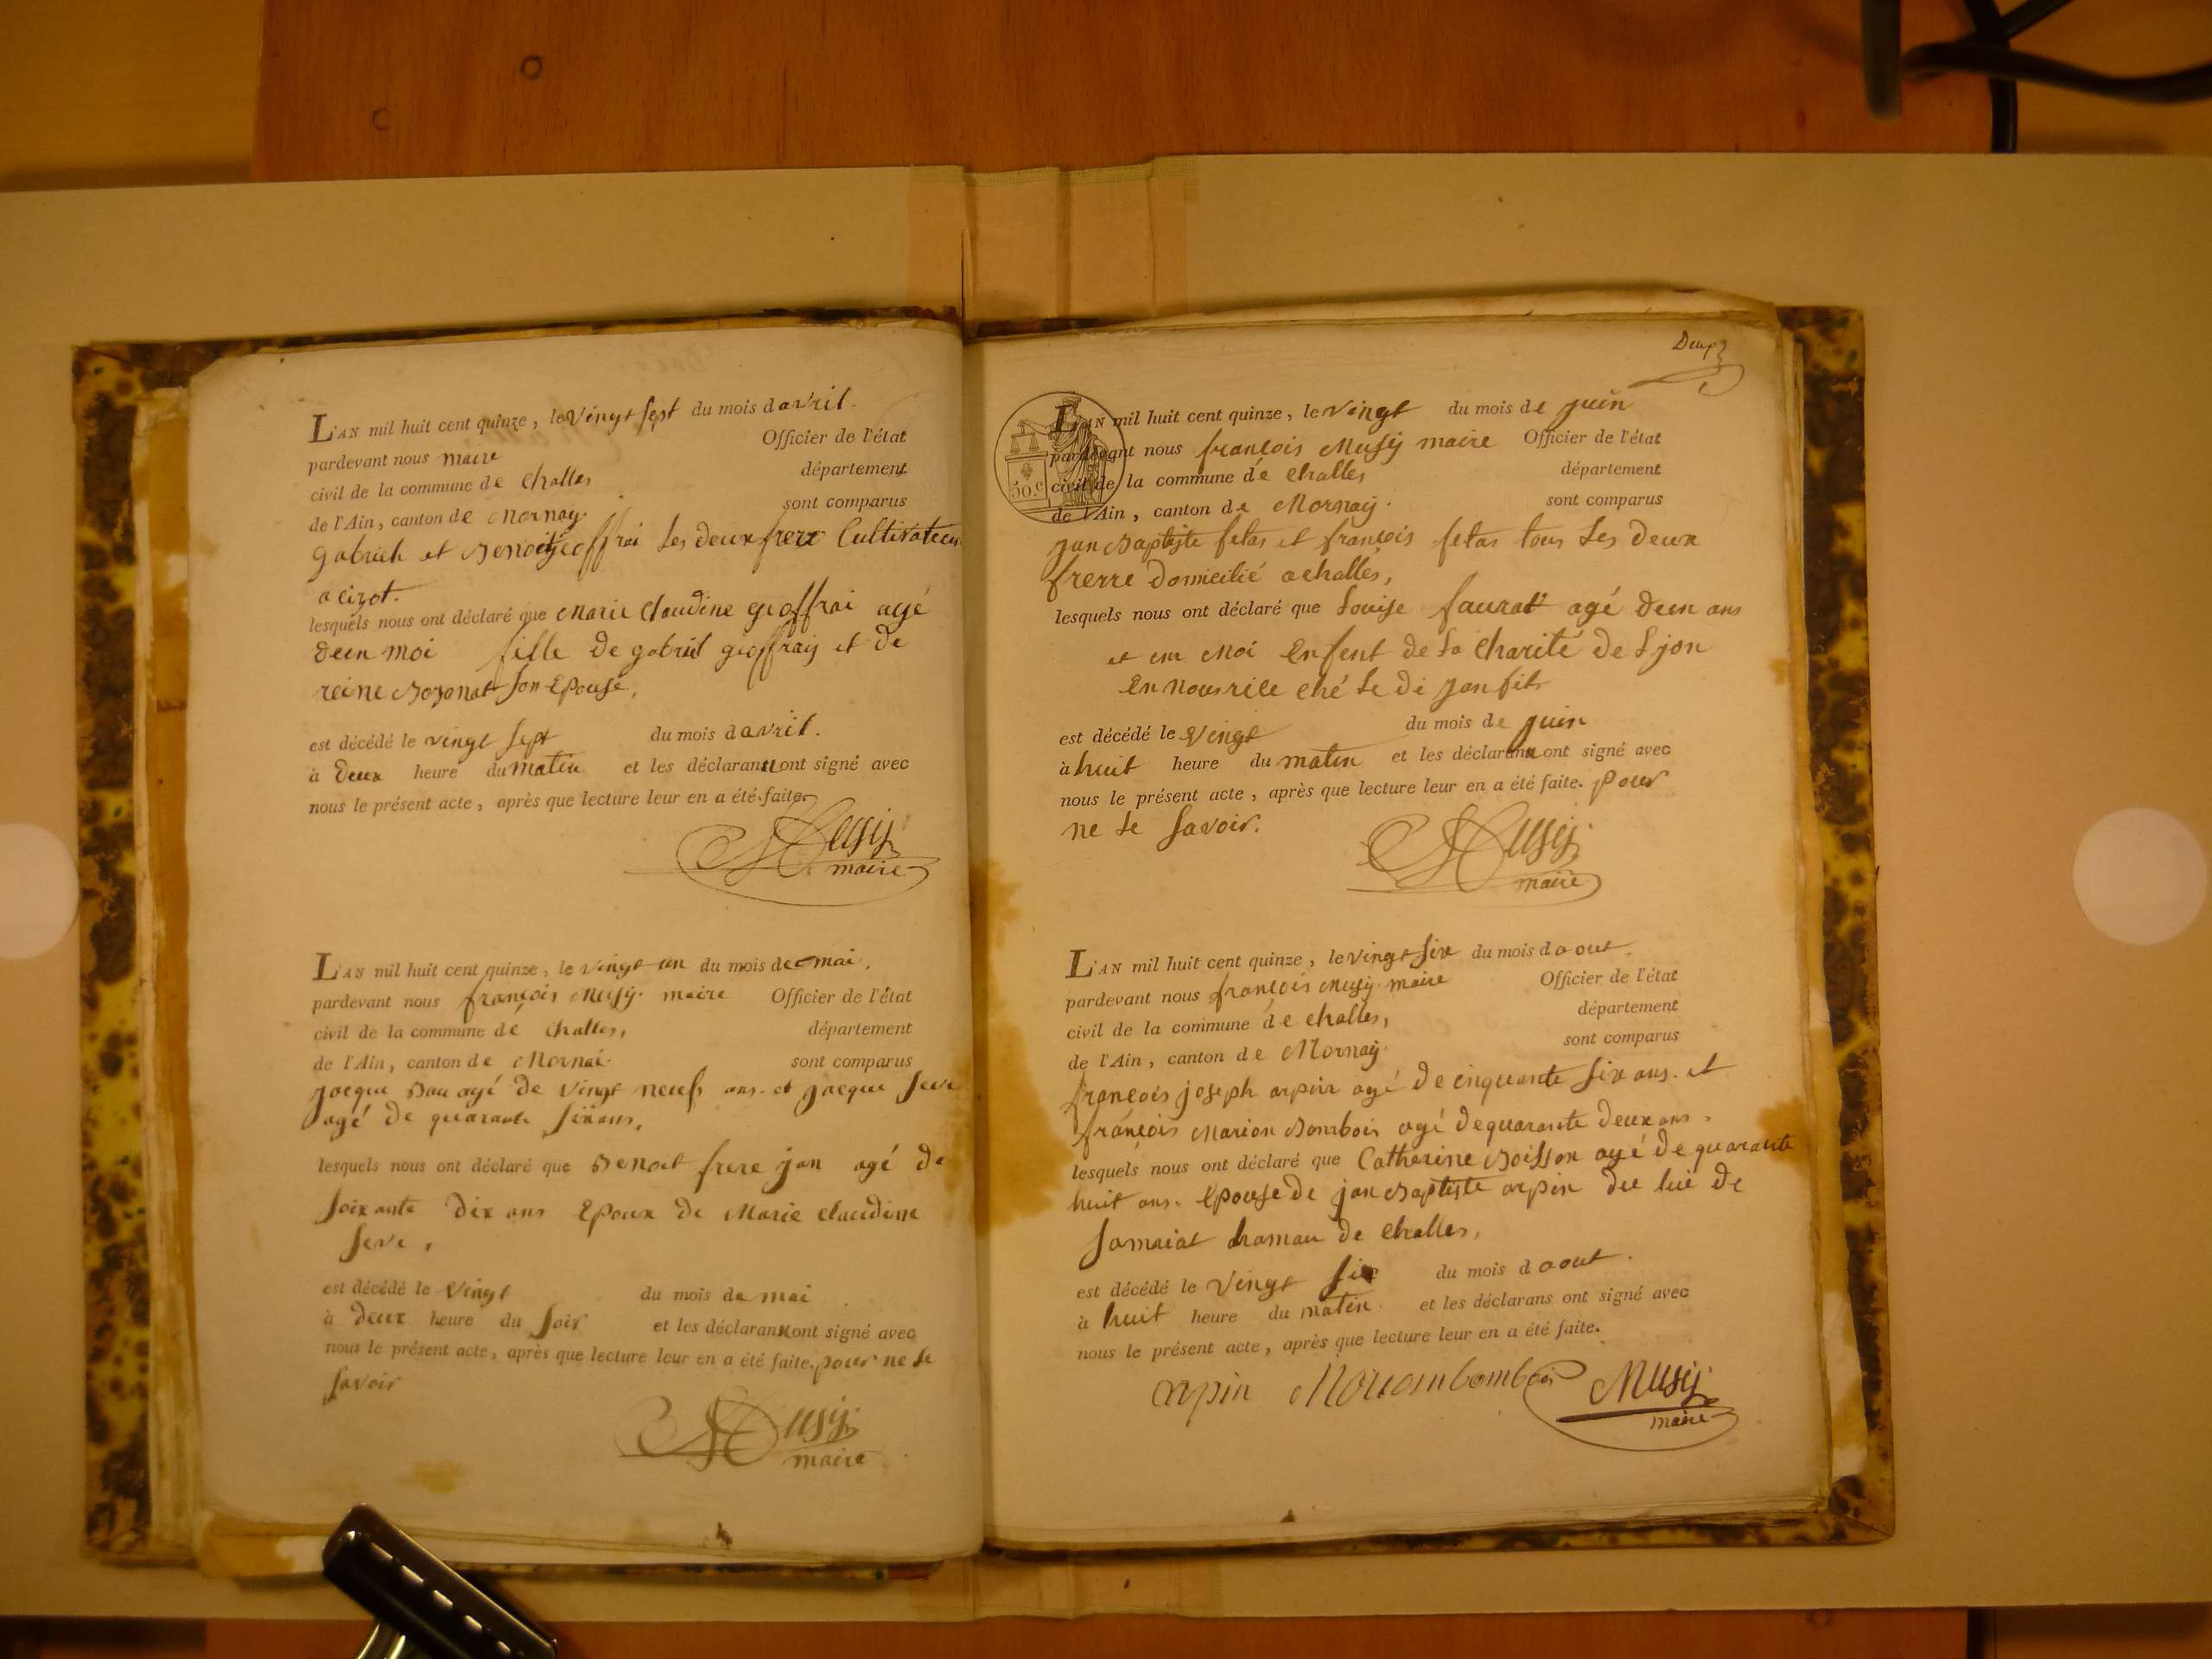 L'AN mil huit cent quinze, le vingt sept du mois d avril.
pardevant nous maire Officier de l'état
civil de la commune de Challes département
de l'Ain, canton de Mornay. sont comparus
gabriel et Benoit geoffrai les deux frere Cultivateur
a cizot.
lesquels nous ont déclaré que Marie Claudine geoffrai agé
deun moi fille de gabriel geoffray et de
reine son Epouse,
est décédé le vingt sept du mois d avril.
à deux heure du matin et les déclarans nont signé avec
nous le présent acte, après que lecture leur en a été faite.
Musy
maire
L'AN mil huit cent quinze, le vingt un du mois de mai,
pardevant nous françois Musy. maire Officier de l'état
civil de la commune de Challes, département
de l'Ain, canton de Mornai. sont comparus
jacque agé de vingt neufs ans. et jacque seve
agé de quarante sixans,
lesquels nous ont déclaré que Benoit frere jan agé de
soixante dix ans Epoux de Marie claudine
seve,
est décédé le vingt du mois de mai
à deux heure du soir et les déclarans nont signé avec
nous le présent acte, après que lecture leur en a été faite. pour ne le
savoir
Musy
maire
Deux
50.c
L'AN mil huit cent quinze, le vingt du mois de juin
pardevant nous françois Musy maire Officier de l'état
civil de la commune de challes département
de l'Ain, canton de Mornay. sont comparus
jan Baptiste fetas et françois fetas tous les deux
frerre domicilié a challes,
lesquels nous ont déclaré que Louise faurat agé deun ans
et un Moi enfent de la Charité de Lyon
En nourice ché le di jan
est décédé le vingt du mois de juin
à huit heure du matin et les déclarans nont signé avec
nous le présent acte, après que lecture leur en a été faite. pour
ne le savoir.
Musy
maire
L'AN mil huit cent quinze, le vingt six du mois d aout
pardevant nous françois Musy. maire Officier de l'état
civil de la commune de challes, département
de l'Ain, canton de Mornay. sont comparus
françois joseph arpin agé de cinquante six ans. et
françois Marion Bombois agé dequarante deux ans.
lesquels nous ont déclaré que Catherine Boisson agé de quarante
huit ans. Epouse de jan Baptiste arpin du lui de
hamau de challes,
est décédé le vingt six du mois d aout.
à huit heure du matin. et les déclarans ont signé avec
nous le présent acte, après que lecture leur en a été faite.
arpin Marionbombois Musy
maire